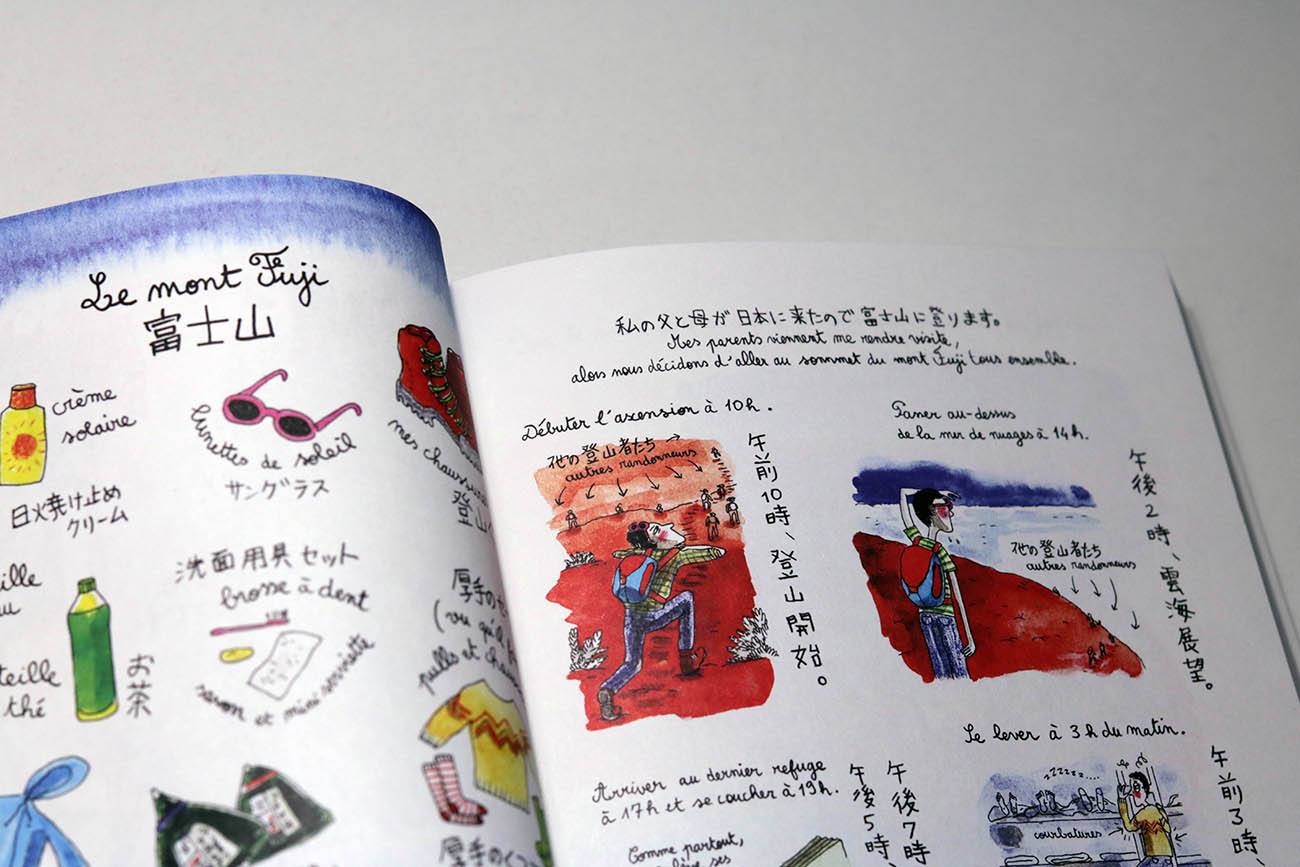 Le mont Fuji
富士山
crème
solaire
日火焼け止め
クリーム
lunettes de soleil
サングラス
mes chaussures
登山
洗面用具セット
brosse à dent
savon et mini serviette
thé
お茶
厚手の
pulls et
厚手のくつ
私の父と母が日本に来たので富士山に登ります。
Mes parents viennent me rendre visite,
alors nous décidons d'aller au sommet du mont Fuji tous ensemble.
Débuter l'ascension à 10h.
他の登山者たち
autres randonneurs
午前10時、登山開始。
Faner au-dessus
de la mer de nuages à 14h.
他の登山者たち
autres randonneurs
午後2時、雲海展望。
Arriver au dernier refuge
à 17h et se coucher à 19h.
午後7時
午後5時、
Comme partout,
Se lever à 3h du matin.
zzzzz....
courbatures
午前3時